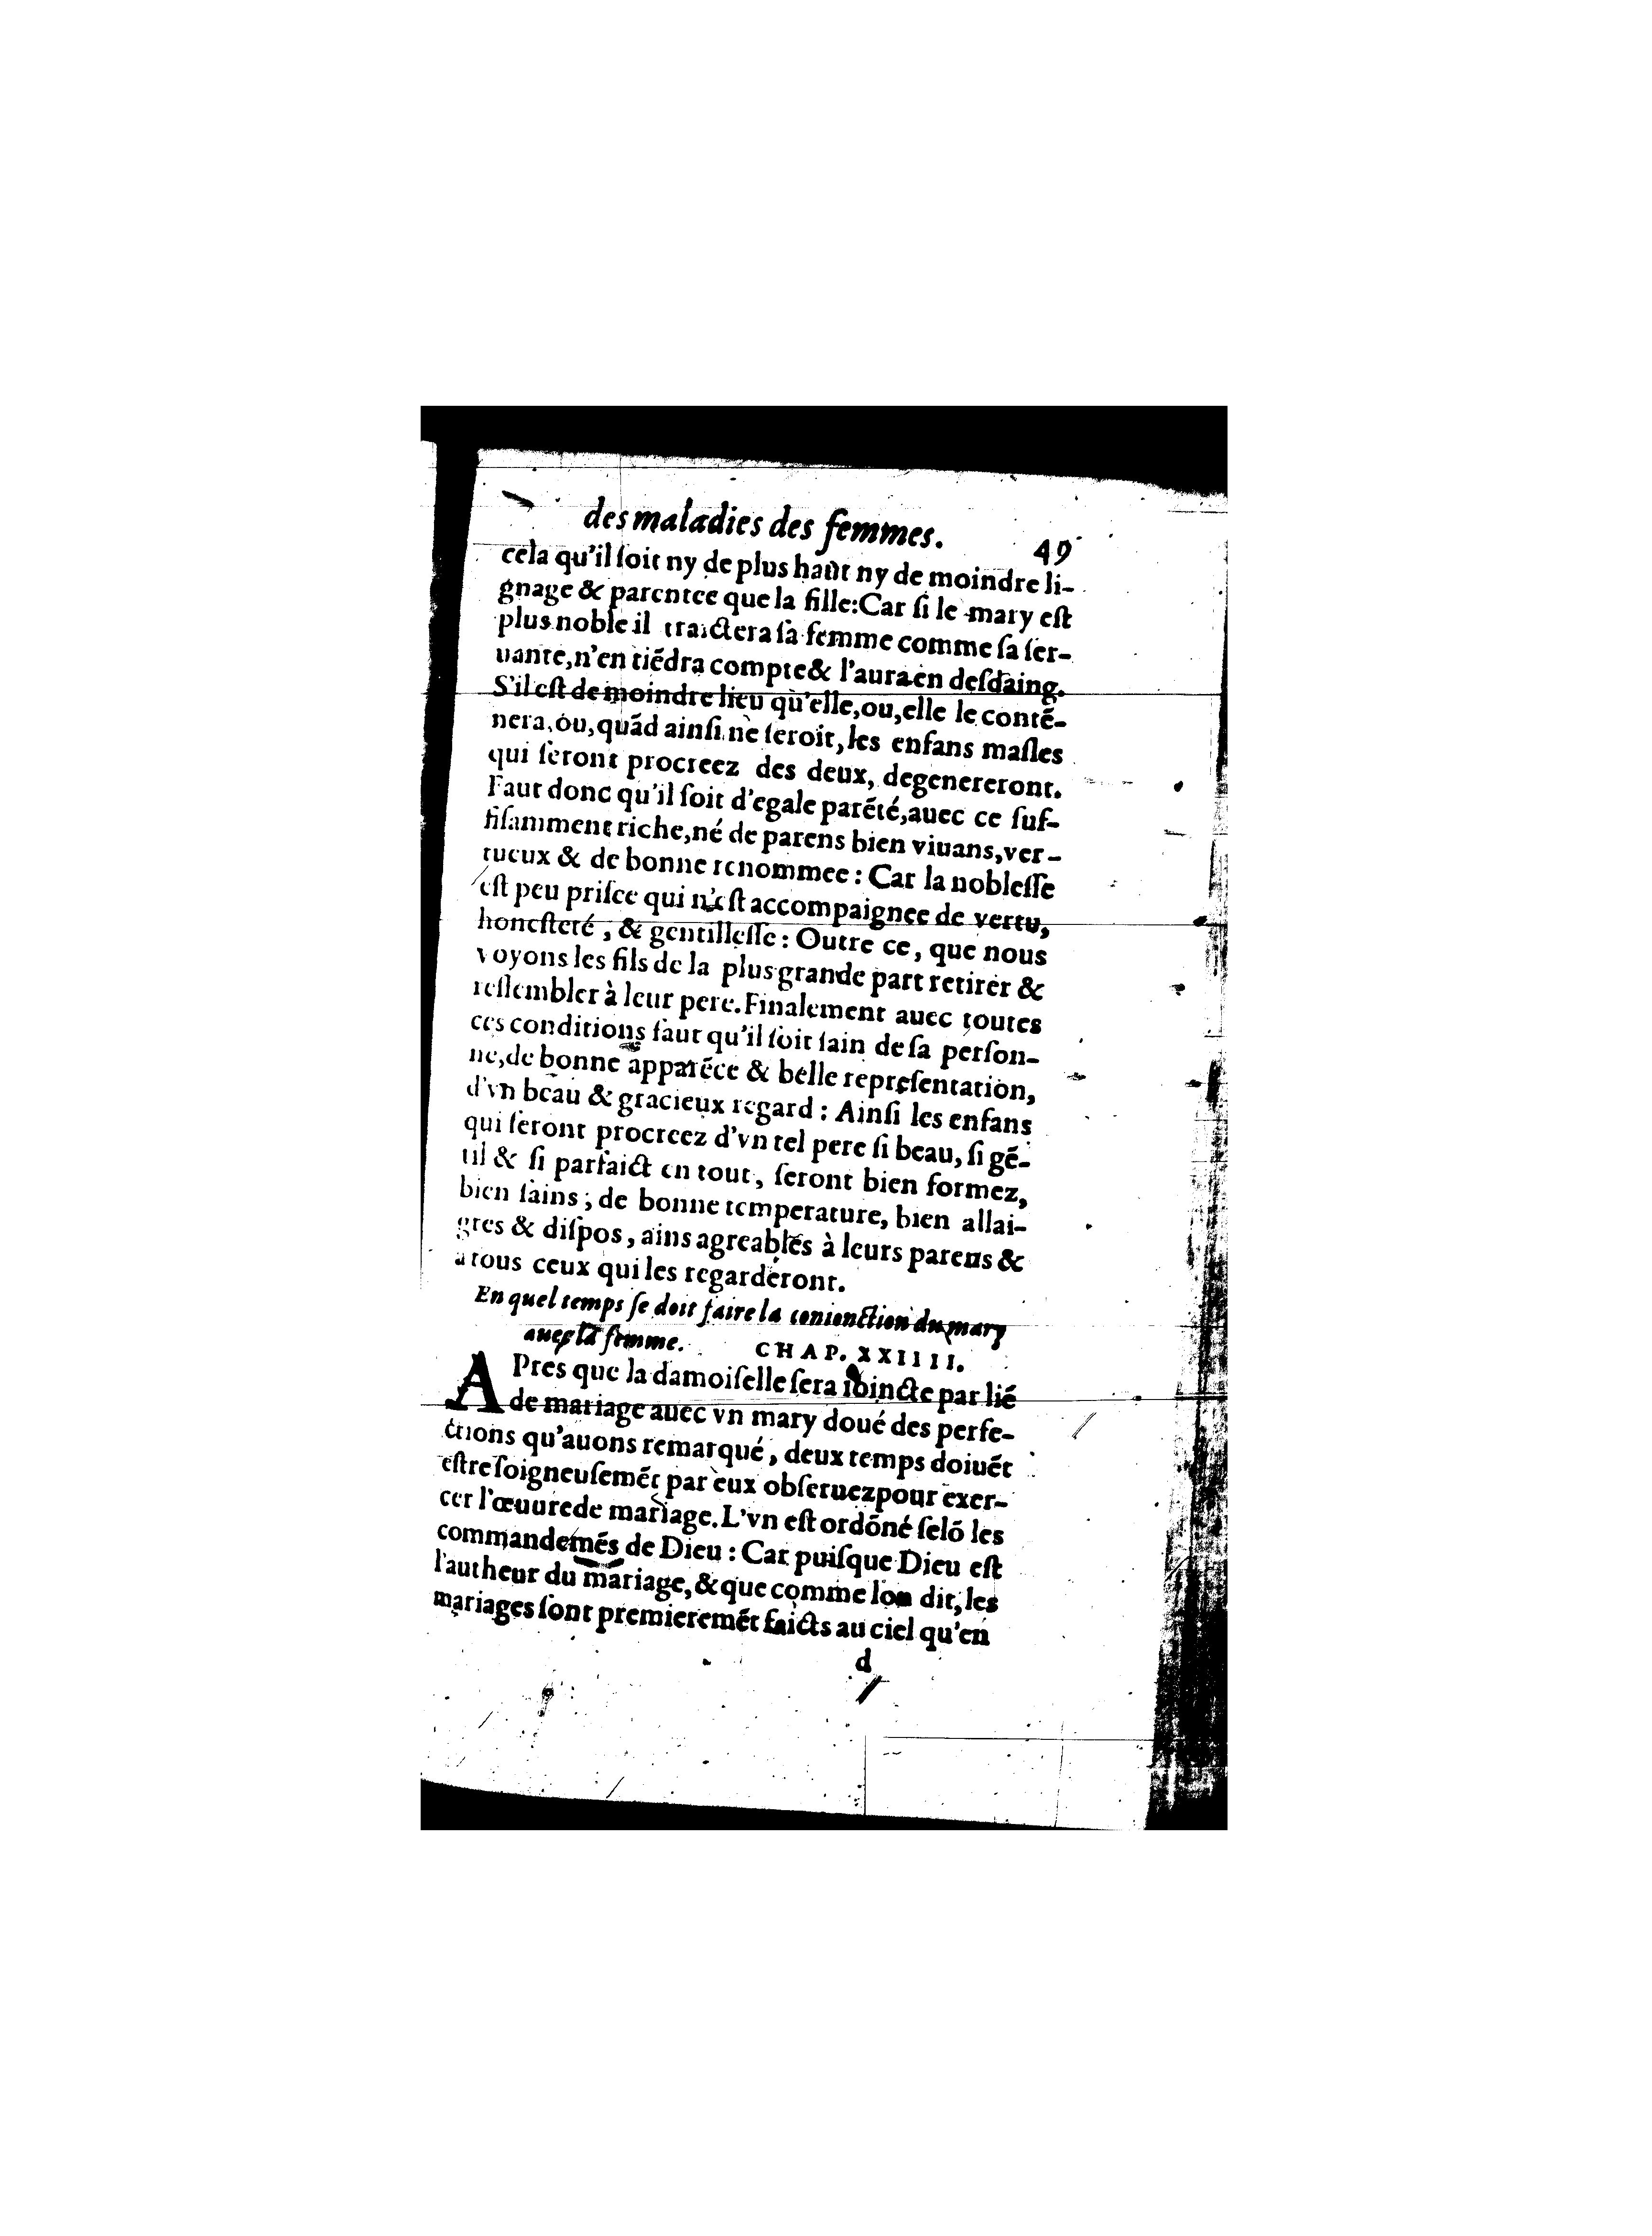 des maladies des femmes. 49
cela qu'il ſoit ny de plus haut ny de moindre li-
gnage & parentee que la fille: Car ſi le mary eſt
plus noble il traictera ſa femme comme ſa ſer-
uante, n'en tiẽdra compte & l'aura en deſdaing.
S'il eſt de moindre lieu qu'elle, ou, elle le contẽ-
nera, ou, quãd ainſi ne ſeroit, les enfans maſles
qui ſeront procreez des deux, degenereront.
Faut donc qu'il ſoit d'egale parẽté, auec ce ſuf-
fiſamment riche, né de parens bien viuans, ver-
tueux & de bonne renommee: Car la nobleſſe
eſt peu priſee qui n'eſt accompaignee de vertu,
honeſteté, & gentilleſſe: Outre ce, que nous
voyons les fils de la plus grande part retirer &
reſſembler à leur pere. Finalement auec toutes
ces conditions faut qu'il ſoit ſain de ſa perſon-
ne, de bonne apparẽce & belle repreſentation,
d'vn beau & gracieux regard: Ainſi les enfans
qui ſeront procreez d'vn tel pere ſi beau, ſi gẽ-
til & ſi parfaict en tout, ſeront bien formez,
bien ſains; de bonne temperature, bien allai-
gres & diſpos, ains agreables à leurs parens &
a tous ceux qui les regarderont.
En quel temps ſe doit faire la conionction du mary
auec la femme. CHAP. XXIIII.
APres que la damoiſelle ſera ioincte par liẽ
de mariage auec vn mary doué des perfe-
ctions qu'auons remarqué, deux temps doiuẽt
eſtre ſoigneuſemẽt par eux obſeruez pour exer-
cer l'œuure de mariage. L'vn eſt ordõné ſelõ les
commandemẽs de Dieu: Car puiſque Dieu eſt
l'autheur du mariage, & que comme lon dit, les
mariages ſont premieremẽt faicts au ciel qu'en
d